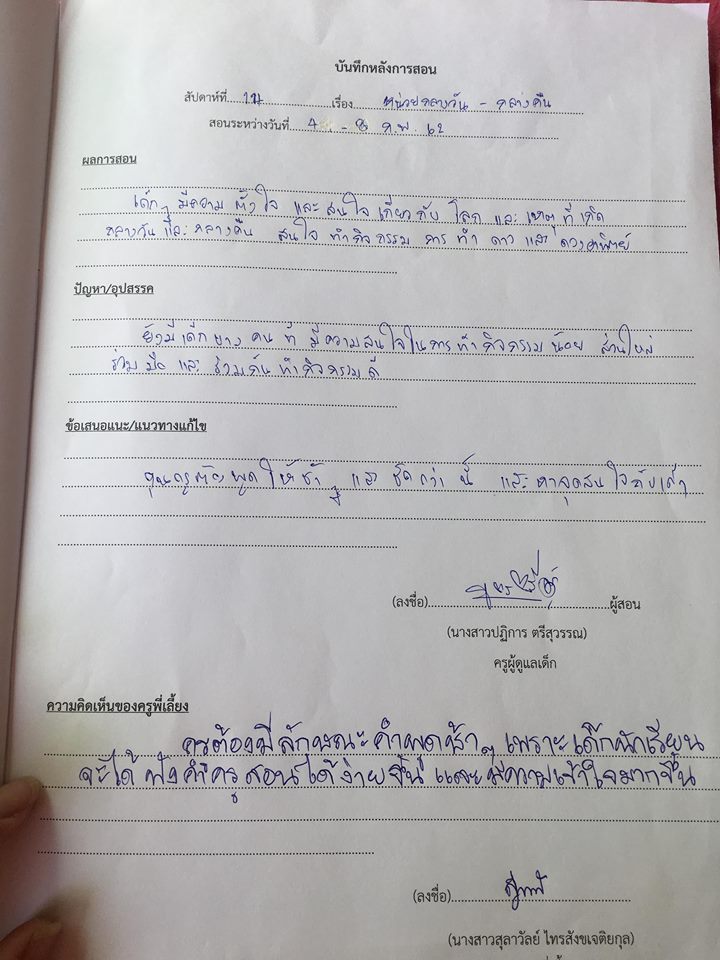 บันทึกหลังการสอน
สัปดาห์ที่ เรื่อง หน่วยกลางวัน - กลางคืน
สอนระหว่างวันที่ 4 - 8 ก.พ. 62
ผลการสอน
เด็กๆ มีความ ตั้งใจ และ สนใจ เกี่ยวกับ โลก และ เหตุ ที่ เกิด
กลางวัน และ กลางคืน สนใจ ทำกิจกรรม การ ทำ ดาว และ ดวงอาทิตย์
ปัญหา/อุปสรรค
ยังมีเด็กบาง คน ที่ มีความสนใจในการทำกิจกรรม น้อย ส่วนใหญ่
ร่วม มือ และ ร่วมกันทำกิจกรรมดี
ข้อเสนอแนะ/แนวทางแก้ไข
คุณครูต้องพูด ให้ช้าๆ และ ชัดกว่า นี้ และ
(ลงชื่อ) ผู้สอน
(นางสาวปฏิการ ตรีสุวรรณ)
ครูผู้ดูแลเด็ก
ความคิดเห็นของครูพี่เลี้ยง
ครูต้องมีลักษณะคำพูดช้าๆ เพราะเด็กนักเรียน
จะได้ ฟังคำครูสอนได้ง่ายขึ้น และมีความเข้าใจมากขึ้น
(ลงชื่อ)
(นางสาวสุลาวัลย์ ไทรสังขเจติยกุล)